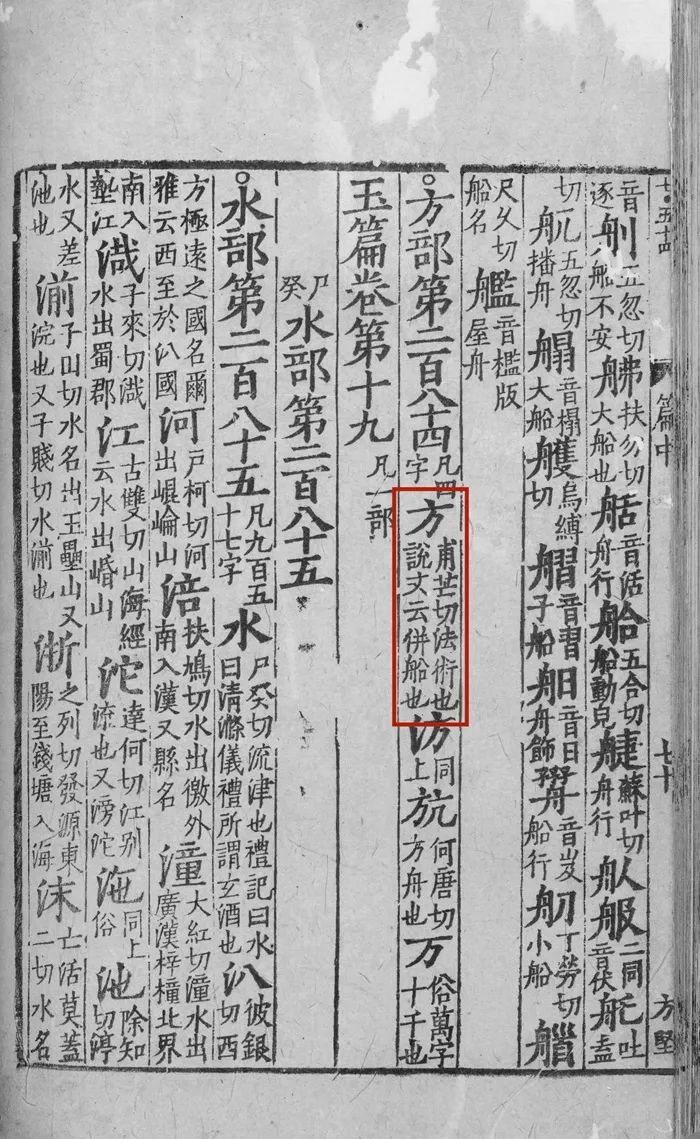 七·五十四 篇中 七十 方堅
音舠五忽切䑧扶勿切大船也䑡音活舟行䑪五合切船動皃䑬蘇叶切舟行䑥舩二同音伏𦨖吐盍
逐舩不安
切𦨉五忽切船播舟䑽音搨大船艧烏縛切䑺音習子船䑄音日舟飾䑔音岌船行舠丁勞切小船艡
尺夂切船名艦音檻版屋舟
方部第二百八十四凡四字方甫芒切法術也說文云併船也汸同上䢚何唐切方舟也万俗萬字十千也
玉篇卷第十九凡一部
尸癸水部第二百八十五
水部第二百八十五凡九百五十七字水尸癸切流津也禮記曰水曰清滌儀禮所謂玄酒也汃彼銀切西
方極遠之國名爾雅云西至於汃國河戸柯切河出崐崘山涪扶鳩切水出徼外南入漢又縣名潼大紅切潼水出廣漢梓橦北界
南入墊江涐子來切涐水出蜀郡江古雙切山海經云水出㟭山沱達何切江别流也又滂沱沲同上俗池除知切渟
水又差池也湔子田切水名出玉壘山又浣也又子賤切水湔也浙之列切發源東陽至錢塘入海沬亡活莫蓋二切水名